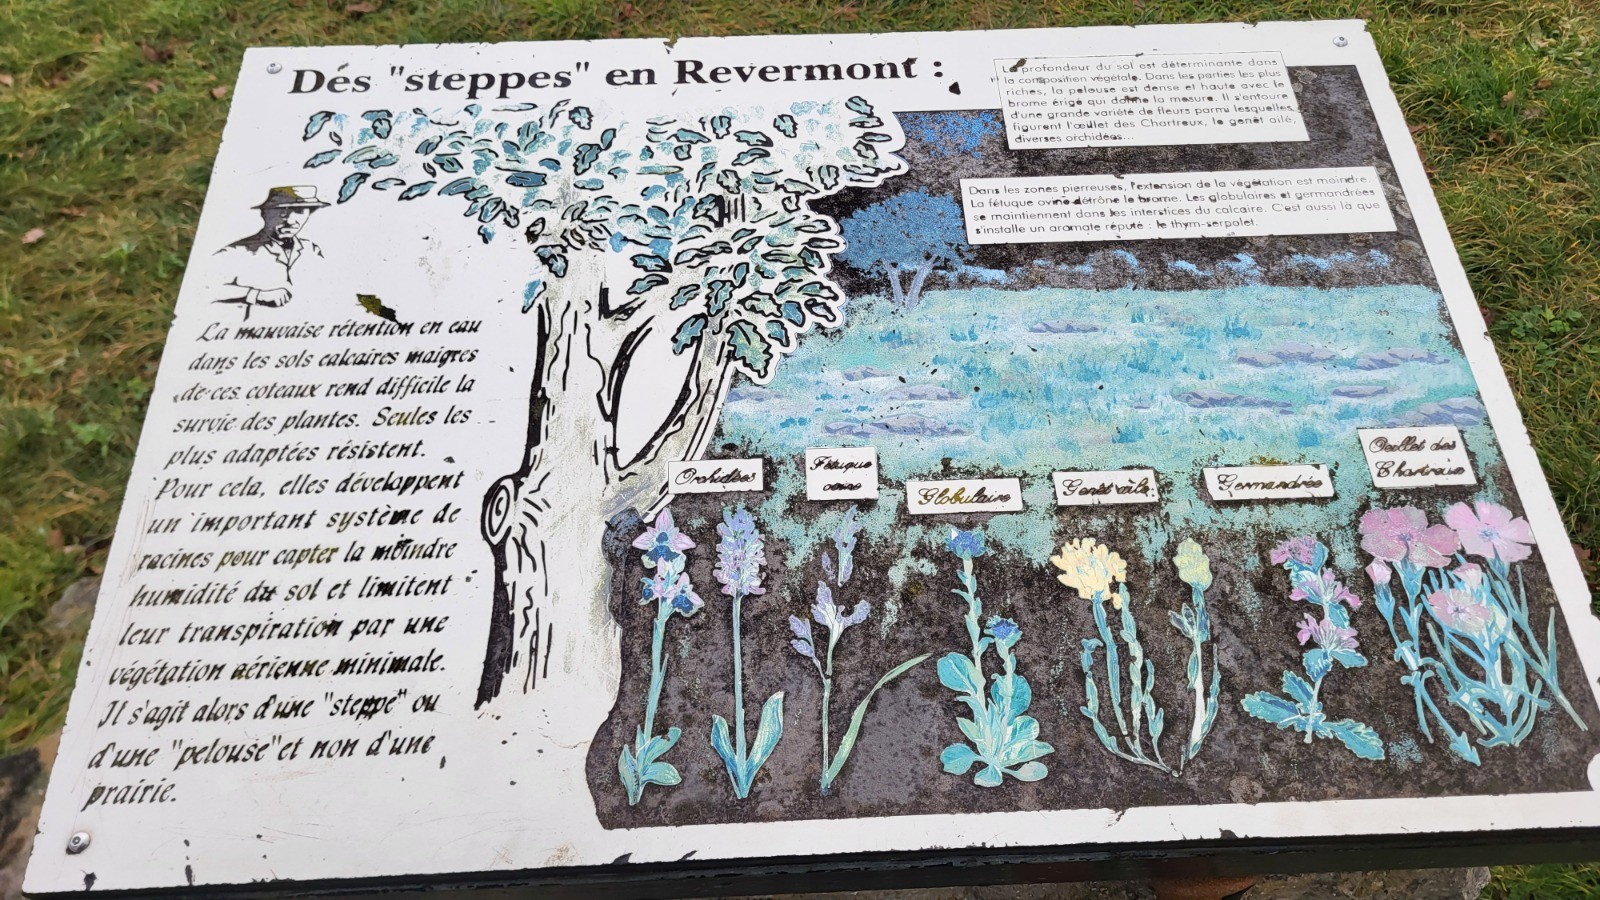 Des "steppes" en Revermont :
La profondeur du sol est déterminante dans
la composition végétale. Dans les parties les plus
riches, la pelouse est dense et haute avec le
brome érigé qui donne la mesure. Il s'entoure
d'une grande variété de fleurs parmi lesquelles
figurent l'œillet des Chartreux, le genêt ailé,
diverses orchidées...
Dans les zones pierreuses, l'extension de la végétation est moindre.
La fétuque ovine détrône le brome. Les globulaires et germandrées
se maintiennent dans les interstices du calcaire. C'est aussi là que
s'installe un aromate réputé : le thym-serpolet.
La mauvaise rétention en eau
dans les sols calcaires maigres
de ces coteaux rend difficile la
survie des plantes. Seules les
plus adaptées résistent.
Pour cela, elles développent
un important système de
racines pour capter la moindre
humidité du sol et limitent
leur transpiration par une
végétation aérienne minimale.
Il s'agit alors d'une "steppe" ou
d'une "pelouse" et non d'une
prairie.
Orchidées
Fétuque
ovine
Globulaire
Genêt ailé
Germandrée
Oeillet des
Chartreux